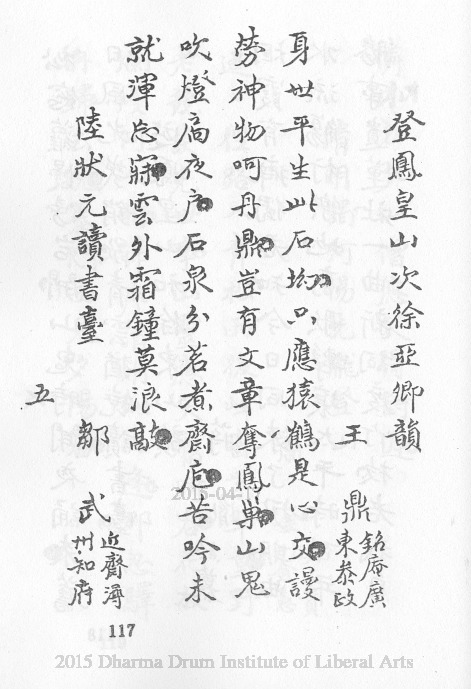 登鳳皇山次徐亞卿韻
王鼎 銘庵廣
東叅政
身世平生此石坳只應猿鶴是心交謾
勞神物呵丹鼎豈有文章奪鳳巢山鬼
吹燈扃夜戶石泉分茗煮齋庖苦吟未
就渾忘寐雲外霜鐘莫浪敲
陸狀元讀書臺
鄒武 近齋潯
州知府
五
117
2015-04-1
2015 Dharma Drum Institute of Liberal Arts